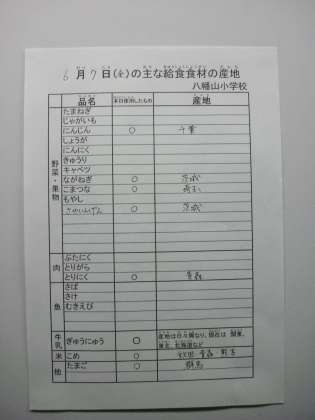 6月7日(金)の主な給食食材の産地
八幡山小学校
品名 本日使用したもの 産地
野菜・果物
たまねぎ
じゃがいも
にんじん ○ 千葉
しょうが
にんにく
きゅうり
キャベツ
ながねぎ ○ 茨城
こまつな ○ 埼玉
もやし
さやいんげん ○ 茨城
肉
ぶたにく
とりがら
とりにく ○ 青森
魚
さば
さけ
むきえび
牛乳 ぎゅうにゅう ○ 産地は日々異なり、現在は 関東、
東北、北海道など
米 こめ ○ 秋田 青森
他 たまご ○ 群馬